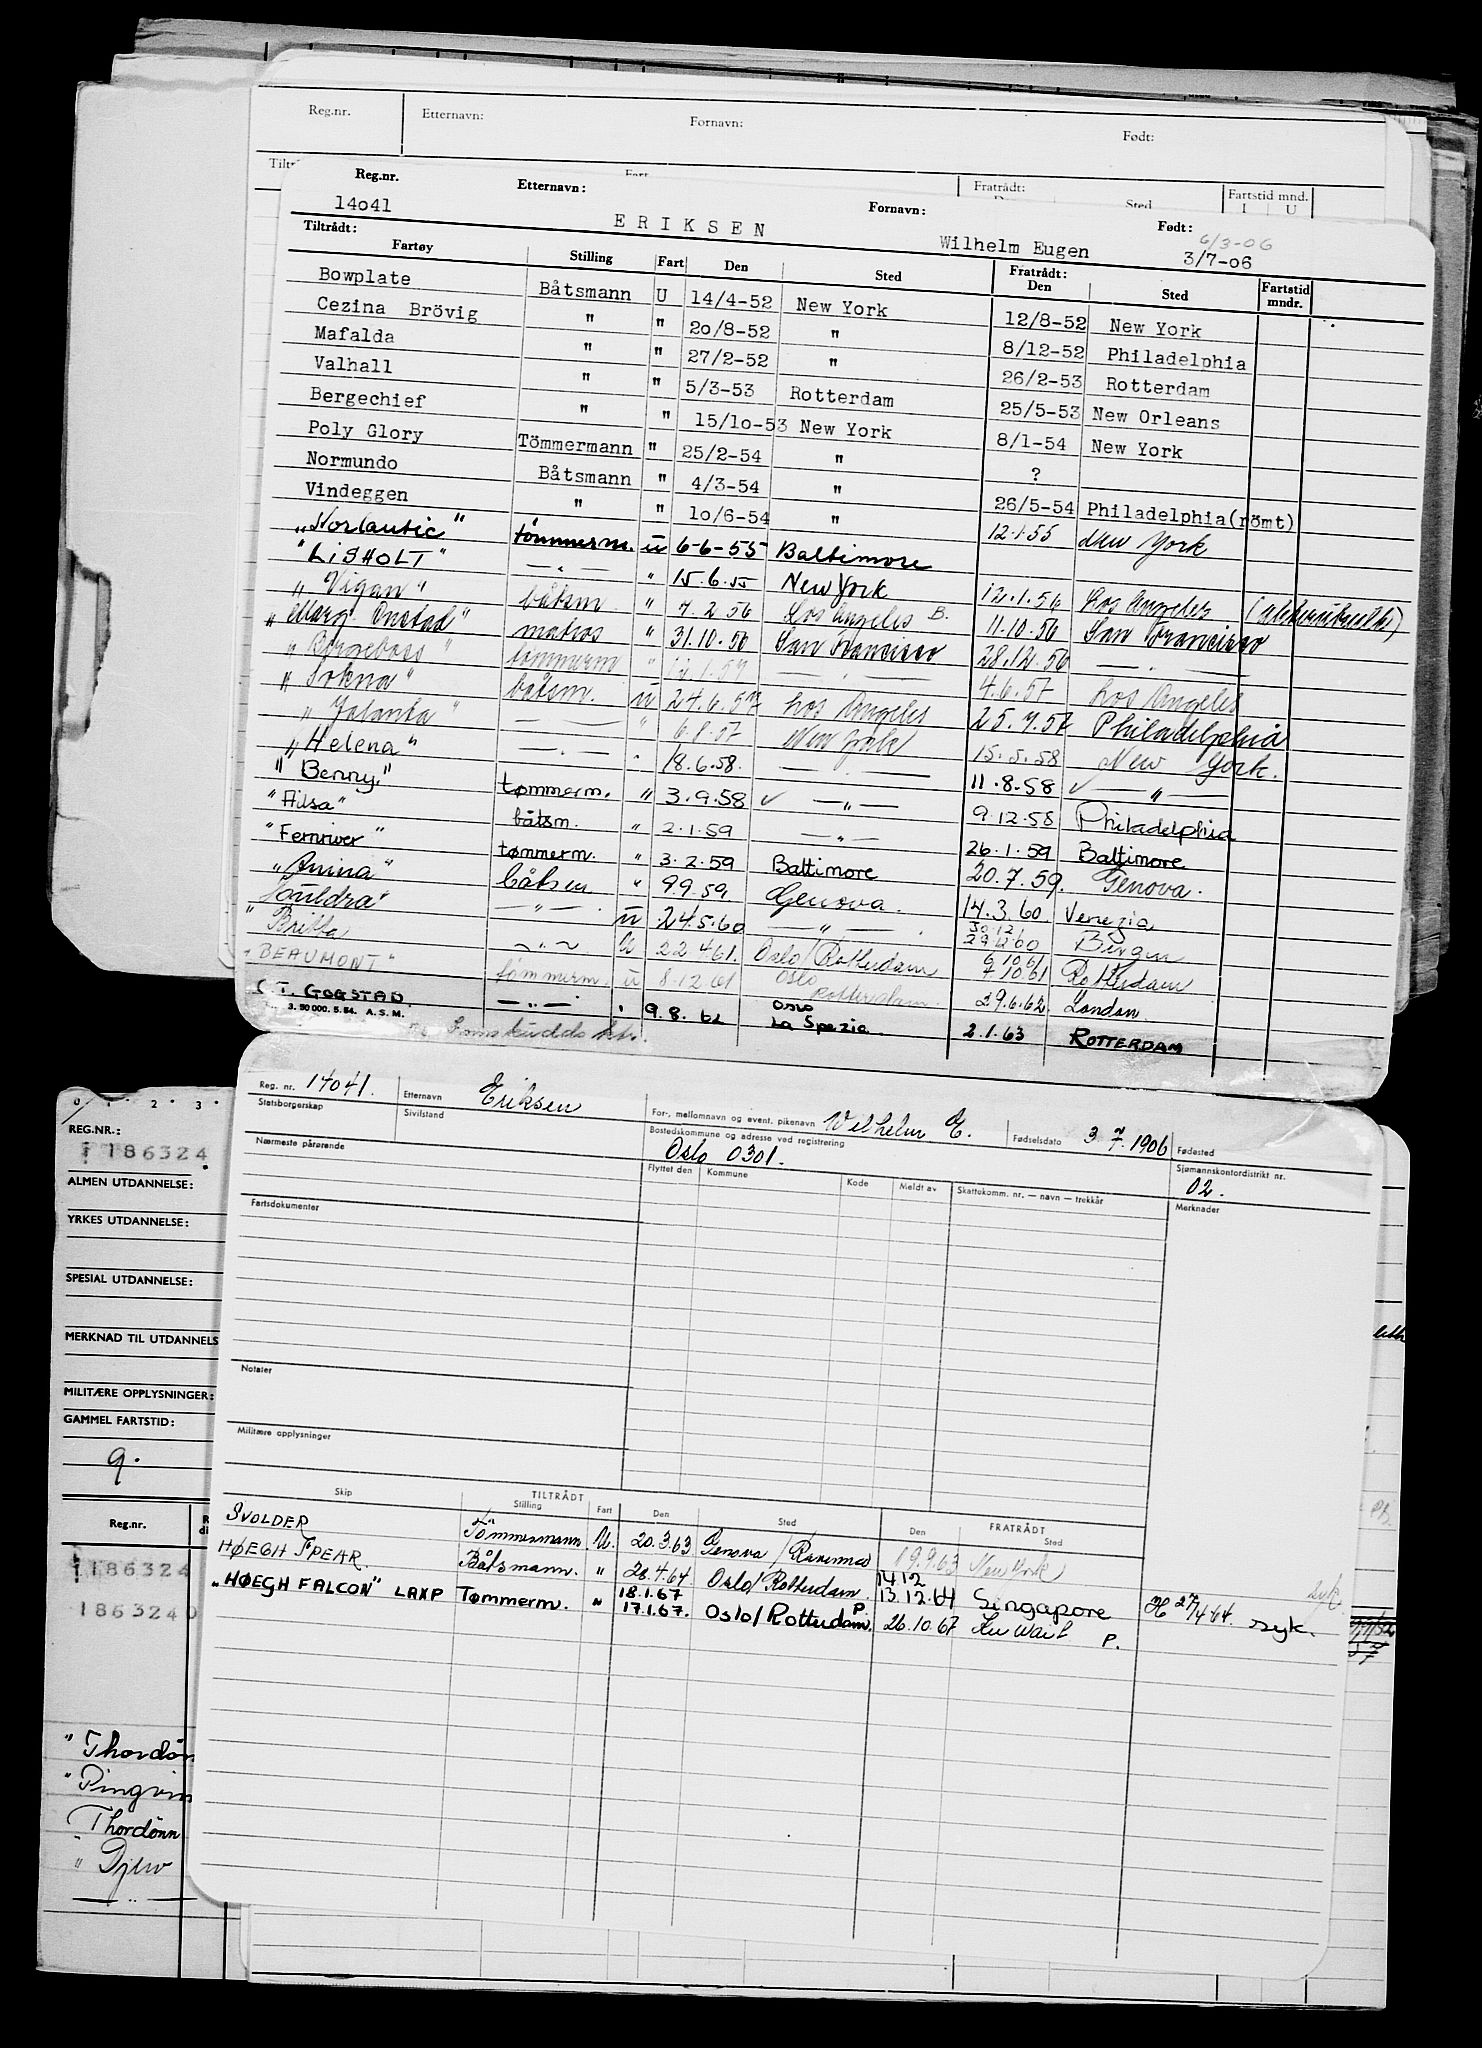 Reg.nr. Etternavn: Fornavn: Født:
Fratrådt: Sted Fartstid mnd.
I U
Reg.nr. Etternavn: Fornavn: Født:
14041 ERIKSEN Wilhelm Eugen 6/3-06
3/7-06
Tiltrådt: Fratrådt:
Fartøy Stilling Fart Den Sted Den Sted Fartstid mndr.
Bowplate Båtsmann U 14/4-52 New York 12/8-52 New York
Cezina Brövig " " 20/8-52 " 8/12-52 Philadelphia
Mafalda " " 27/2-52 " 26/2-53 Rotterdam
Valhall " " 5/3-53 Rotterdam 25/5-53 New Orleans
Bergechief " " 15/10-53 New York 8/1-54 New York
Poly Glory Tömmermann " 25/2-54 " ?
Normundo Båtsmann " 4/3-54 " 26/5-54 Philadelphia(römt)
Vindeggen " " 10/6-54 " 12.1.55 New York
"Norlantic" tömmerm. u 6-6-55 Baltimore
"LISHOLT" — " — " 15.6.55 New York 12.1.56 Los Angeles
"Vigan" båtsm. " 7.2.56 Los Angeles B. 11.10.56 San Francisco
"Marg. Onstad" matros " 31.10.56 San Francisco 28.12.56 — " —
"Bergeboss" tömmerm " 12.1.57 — " — 4.6.57 Los Angeles
"Sokna" båtsm. u 24.6.57 Los Angeles 25.7.57 Philadelphia
"Jalanta" — " — " 6.8.57 New York 15.5.58 New York.
"Helena" — " — " 18.6.58. — " — 11.8.58 — " —
"Benny" tømmerm. " 3.9.58 — " — 9.12.58 Philadelphia
"Ailsa" båtsm. " 2.1.59 — " — 26.1.59 Baltimore
"Fernriver" tømmerm. " 3.2.59 Baltimore 20.7.59. Genova.
"Anina" båtsm " 9.9.59 Genova. 14.3.60 Venezia
— " — u 24.5.60 — " — 30.12
29.12.60 Bergen
"Britta — " — U 22.4.61. Oslo/Rotterdam 6.10.61
7.10.61 Rotterdam
"BEAUMONT" tömmerm. u 8.12.61 Oslo
Rotterdam. 29.6.62 London
C.T. GOGSTAD. — " — " 9.8.62 Oslo
La Spezia 2.1.63 ROTTERDAM
3. 50 000. 5. 54. A.S.M.
Reg. nr. 14041. Etternavn Eriksen For-, mellomnavn og event. pikenavn Wilhelm E. Fødselsdato 3.7.1906 Fødested
Statsborgerskap Sivilstand Bostedskommune og adresse ved registrering Oslo 0301. Sjømannskontordistrikt nr. 02.
Nærmeste pårørende Flyttet den Kommune Kode Meldt av Skattekomm. nr. — navn — trekkår Merknader
Fartsdokumenter
Notater
Militære opplysninger
TILTRÅDT FRATRÅDT
Skip Stilling Fart Den Sted Den Sted
SVOLDER Tömmermann U. 20.3.63 Genova/Ravenna 19.9.63 New York syk
HØEGH SPEAR. Båtsmann. " 28.4.64 Oslo/Rotterdam 14.12
13.12.64 Singapore H 27/4 64. syk.
"HØEGH FALCON" LAXP Tømmerm. " 18.1.67
17.1.67. Oslo/Rotterdam P. 26.10.67 Kuwait P.
0 1 2 3
REG.NR.:
186324
ALMEN UTDANNELSE:
YRKES UTDANNELSE:
SPESIAL UTDANNELSE:
MERKNAD TIL UTDANNELS
MILITÆRE OPPLYSNINGER:
GAMMEL FARTSTID:
9.
Reg.nr.
186324
1863240
"Thordön
"Pingvin
Thordönn
"Djerv
— " —